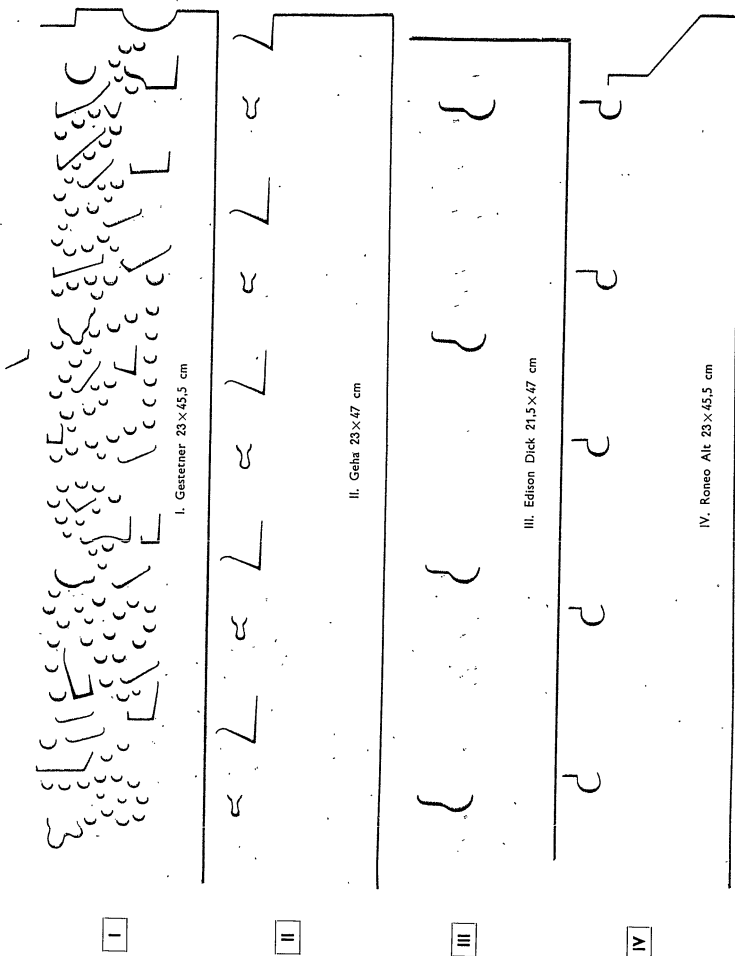 I. Gestetner 23×45,5 cm
II. Geha 23×47 cm
III. Edison Dick 21,5×47 cm
IV. Roneo Alt 23×45,5 cm
I
II
III
IV